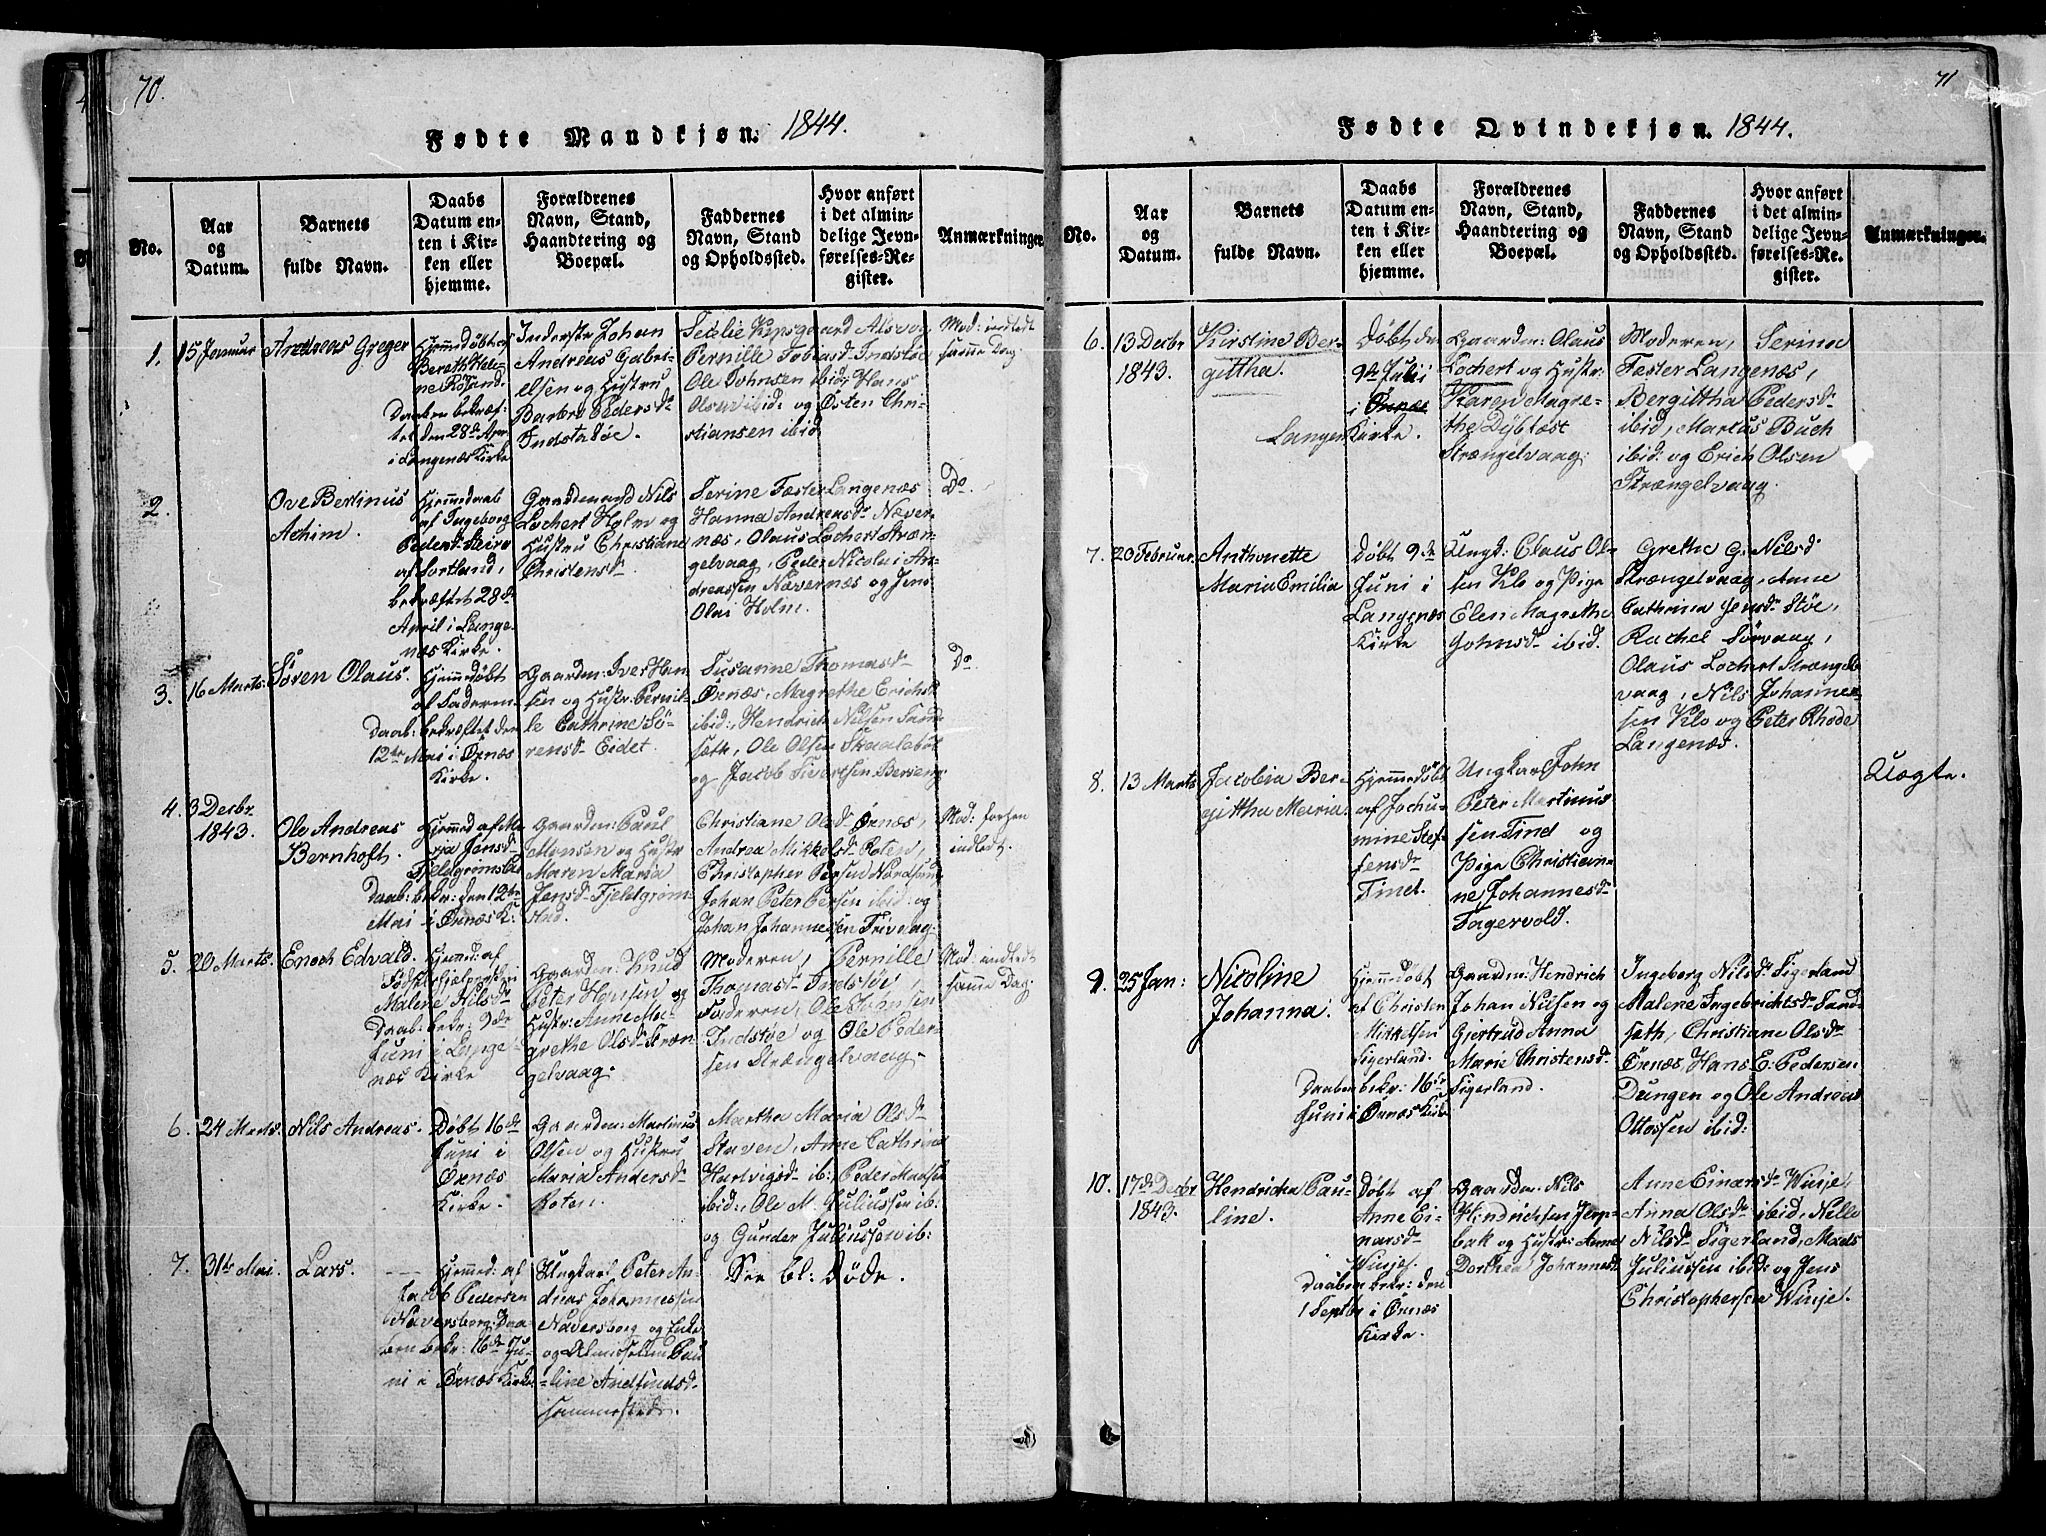 70.
Fødte Mandkjøn. 1844.
No.
Aar
og
Datum.
Barnets
fulde Navn.
Daabs
Datum en-
ten i Kir-
ken eller
hjemme.
Forældrenes
Navn, Stand,
Haandtering og
Boepæl.
Faddernes
Navn, Stand
og Opholdssted.
Hvor anført
i det almin-
delige Jevn-
førelses-Re-
gister.
Anmærkninger.
1.
15 Januar
Andreas Greger
Hjemmedøbt af
Bereth Heli-
ne Røsand.
Daaben bekræf-
tet den 28de Apr.
i Langenæs Kirke
Inderste Johan
Andreas Gabri-
elsen og Hustru
Barbro Pedersd.
Indstadøe.
Pernille Tobiasd. Indstøe
Ole Johnsen ibid; Hans
Olsen ibid: og Østen Chri-
stiansen ibid
Mod: indledt
samme Dag.
2.
Ove Bertinus
Achim.
Hjemmedaab
af Ingeborg
Pedersd. Steiro
af Sortland,
bekræftet 28de
April i Lange-
næs Kirke.
Gaardmand Nils
Lochert Holm og
Hustru Christiane
Christensd.
Serine Falster Langenæs
Hanna Andreasd. Næver-
næs, Olaus Lochert Stræn-
gelvaag, Peder Nicolai An-
dreassen Nævernæs og Jens
Olai Holm.
Do
3.
16 Marts.
Søren Olaus.
Hjemmedøbt
af Faderen.
Daab: bekræftet den
12te Mai i Øxnæs
Kirke.
Gaardm: Iver Han-
sen og Hustr: Pernil-
le Cathrine Sø-
rensd. Eidet.
Susanne Thomasd.
Øxnæs, Magrethe Erichsd.
ibid:, Hendrich Nilsen Sand-
sæth, Ole Olsen Skaalebøl
og Jacob Sivertsen Børseng
Do
4.
3 Decbr
1843.
Ole Andreas
Bernhoft.
Hjemmed af Ma-
ria Jensd.
Daab: bekr: den 12te
Mai i Øxnæs K:
Gaardm: Paul
Monsen og Hustr
Maren Maria
Jensd. Fjeldgrim-
stad.
Christiane Olsd. Øxnæs,
Andrea Mikkelsd. Roten,
Christopher Persen Nordsund
Johan Peter Persen ibid: og
Johan Johannessen Frivaag.
Mod: forhen
indledt.
5.
20 Marts.
Enoch Edvald.
Hjemmed: af
Malene Nilsd.
Daab: bekr: 9de
Juni i Lange-
næs Kirke
Gaardm: Knud
Peter Hansen og
Hustr: Anne Ma-
grethe Olsd. Stræn-
gelvaag.
Moderen, Pernille
Thomasd. Indstøe,
Faderen, Ole Johnsen
Indstøe og Ole Peder-
sen Strængelvaag.
Mod: indledt
samme Dag.
6.
24 Marts.
Nils Andreas.
Døbt 16de
Juni i
Øxnæs
Kirke.
Gaardm: Martinus
Olsen og Hustru
Maria Andersd.
Roten.
Martha Maria Olsd.
Staven, Anne Cathrina
Hartvigsd. ib: Peder Madsen
ibid:, Ole M. Juliussen ib:
og Gunder Juliussen ib:
7.
31te Mai.
Lars.
Hjemmed: af
Jacob Pedersen
Naversborg; Daa-
ben bekr: 16de Ju-
ni i Øxnæs Kirke
Ungkarl Peter An-
dreas Johannessen
Naversborg og Enke
og Almisselem Pau-
line Andfindsd.
sammesteds.
See bl: Døde.
71
Fødte Qvindekjøn. 1844.
No.
Aar
og
Datum.
Barnets
fulde Navn.
Daabs
Datum en-
ten i Kir-
ken eller
hjemme.
Forældrenes
Navn, Stand,
Haandtering og
Boepæl.
Faddernes
Navn, Stand
og Opholdssted.
Hvor anført
i det almin-
delige Jevn-
førelses-Re-
gister.
Anmærkninger.
6.
13 Decbr
1843.
Kirstine Ber-
gittha.
Døbt den
9de Julii
i Øxnæs
Langen Kirke.
Gaardm: Olaus
Lochert og Hustr:
Karen Magre-
the Dybfæst
Strængelvaag:
Moderen, Serina
Falster Langenæs,
Bergittha Pedersd.
ibid, Marcus Buch
ibid: og Erich Olsen
Strængelvaag.
7.
20 Februar.
Anthonette
Maria Emilia
Døbt 9de
Juni i
Langenæs
Kirke
Ungk: Claus Ol-
sen Klo og Pige
Elen Magrethe
Johnsd. ibid.
Grethe G. Nilsd
Strængelvaag, Anne
Cathrina Jensd. Støe,
Rachel Sørvaag,
Olaus Lochert Strængel-
vaag, Nils Johannes-
sen Klo og Peter Rhode
Langenæs.
8.
13 Marts
Jacobia Ber-
gittha Maria.
Hjemmedøbt
af Jochu-
mine Stef-
fensd.
Tinet.
Ungkarl John
Peter Martinus-
sen Tind og
Pige Christian-
ne Johannesd.
Fagervold.
Uægte.
9.
25 Jan:
Nicoline
Johanna.
Hjemmedøbt
af Christen
Mikkelsen
Sigerland.
Daaben bekr: 16de
Juni i Øxnæs Kirke
Gaardm: Hendrich
Johan Nilsen og
Gjertrud Anna
Marie Christensd.
Sigerland.
Ingeborg Nilsd. Sigerland
Malene Ingebrichtsd. Sand-
sæth, Christiane Olsd.
Øxnæs, Hans E. Pedersen
Dungen og Ole Andreas
Ottossen ibid:
10.
17de Decbr
1843.
Hendricka Pau-
line.
Døbt af
Anne Ei-
narsd.
Winje.
Daaben bekr: den
1 Septbr i Øxnæs
Kirke.
Gaardm: Nils
Hindrichsen Jerp-
bak og Hustr: Anne
Dorthea Johannesd
Anne Einarsd. Winje,
Anna Olsd. ibid, Nille
Nilsd. Sigerland, Mads
Juliussen ibid: og Jens
Christophersen Winje.